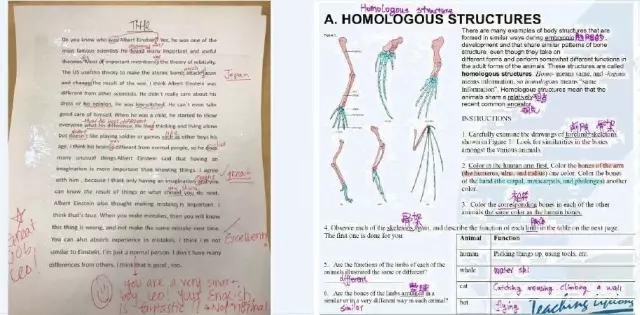 Title
Do you know who was Albert Einstein? Yes, he was one of the
most famous scientists. He found many important and useful
theories. Most of important members the theory of relativity.
The US used his theory to make the atomic bomb, attack Japan
Japan
and changed the result of the war. I think Albert Einstein was
different from other scientists. He didn't really care about his
dress or
take
good care of himself. When he was a child, he started to show
He liked thinking and living alone
but doesn't like playing soldier or games such as other boys his
age. I think his being different from normal people, so he does
many unusual things. Albert Einstein said that having an
imagination is more important than knowing things. I agree
with him, because I think only having an imagination and you
again
can know the result of things or what should you do next.
Albert Einstein also thought making mistakes is important. I
think that's true. When you make mistakes, then you will know
this thing is wrong, and not make the same mistake next time.
You can also absorb experience in mistakes. I think I'm not
similar to Einstein. I'm just a normal person. I don't have many
differences from others. I think that is good, too.
Great
job
Leo!
Excellent!
you are a very smart
boy Leo! Your English
is fantastic! Not normal
Homologous structure
A. HOMOLOGOUS STRUCTURES
There are many examples of body structures that are
formed in similar ways during embryonic
development and that share similar patterns of bone
structure, even though they take on
different forms and perform somewhat different functions in
the adult forms of the animals. These structures are called
homologous structures. Homo- means same, and -logous
means information, so homologous means "same
information". Homologous structures mean that the
animals share a relatively
recent common ancestor.
INSTRUCTIONS
1. Carefully examine the drawings of forelimb skeletons
shown in Figure 1. Look for similarities in the bones
amongst the various animals.
2. Color in the human arm first. Color the bones of the arm
(the humerus, ulna, and radius) one color. Color the bones
of the hand (the carpal, metacarpals, and phalanges) another
color.
3. Color the corresponding bones in each of the other
animals the same color as the human bones.
4. Observe each of the skeletons again, and describe the function of each limb in the table on the next page.
The first one is done for you.
Animal Function
human Picking things up, using tools, etc.
5. Are the functions of the limbs of each of the
animals illustrated the same or different?
different
whale water
cat Catching mouse, climbing a wall
6. Are the bones of the limbs arranged in a
similar or in a very different way in each animal?
similar
bat flying
Teaching